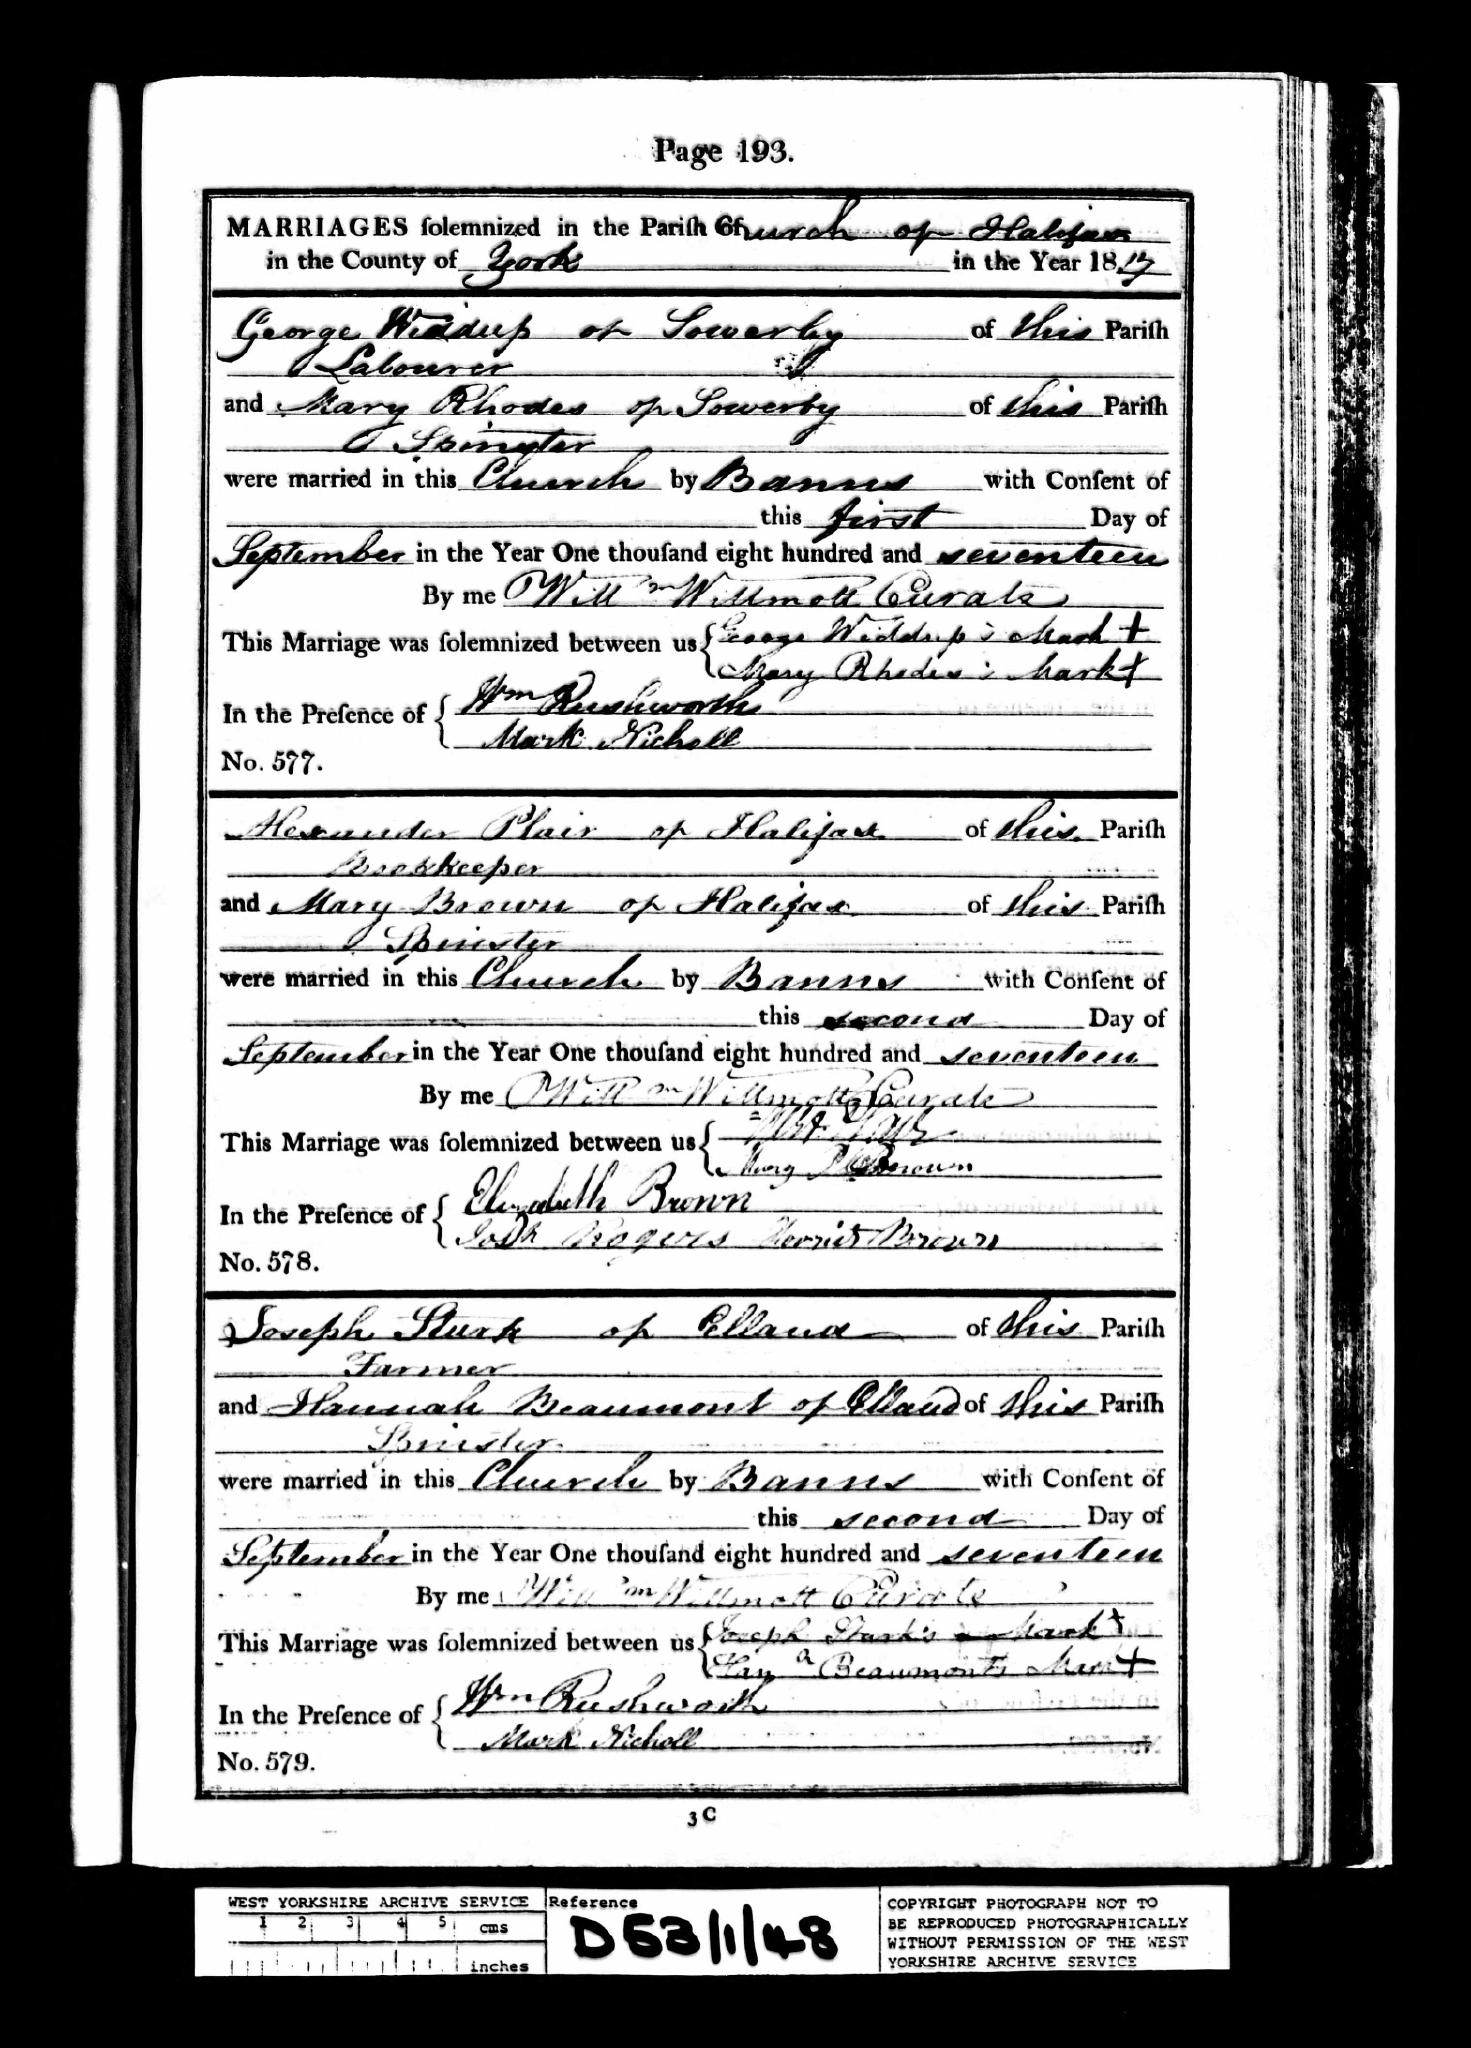 Page 193.
MARRIAGES ſolemnized in the Pariſh Church of Halifax
in the County of York in the Year 1817
George Widdup of Sowerby of this Pariſh
Labourer
and Mary Rhodes of Sowerby of this Pariſh
Spinster
were married in this Church by Banns with Conſent of
this first Day of
September in the Year One thouſand eight hundred and seventeen
By me Willm Willmott Curate
This Marriage was ſolemnized between us George Widdup's Mark +
Mary Rhodes's Mark +
In the Preſence of Wm Rushworth
Mark Nicholl
No. 577.
Alexander Plair of Halifax of this Pariſh
Bookkeeper
and Mary Brown of Halifax of this Pariſh
Spinster
were married in this Church by Banns with Conſent of
this second Day of
September in the Year One thouſand eight hundred and seventeen
By me Willm Willmott Curate
This Marriage was ſolemnized between us
Mary Brown
In the Preſence of Elizabeth Brown
Rogers Harriet Brown
No. 578.
Joseph Sturk of Elland of this Pariſh
Farmer
and Hannah Beaumont of Elland of this Pariſh
Spinster
were married in this Church by Banns with Conſent of
this second Day of
September in the Year One thouſand eight hundred and seventeen
By me Willm Willmott Curate
This Marriage was ſolemnized between us Joseph Sturk's Mark +
Hana Beaumont's Mark +
In the Preſence of Wm Rushworth
Mark Nicholl
No. 579.
3 C
WEST YORKSHIRE ARCHIVE SERVICE
1 2 3 4 5 cms
inches
Reference
D53/1/48
COPYRIGHT PHOTOGRAPH NOT TO
BE REPRODUCED PHOTOGRAPHICALLY
WITHOUT PERMISSION OF THE WEST
YORKSHIRE ARCHIVE SERVICE